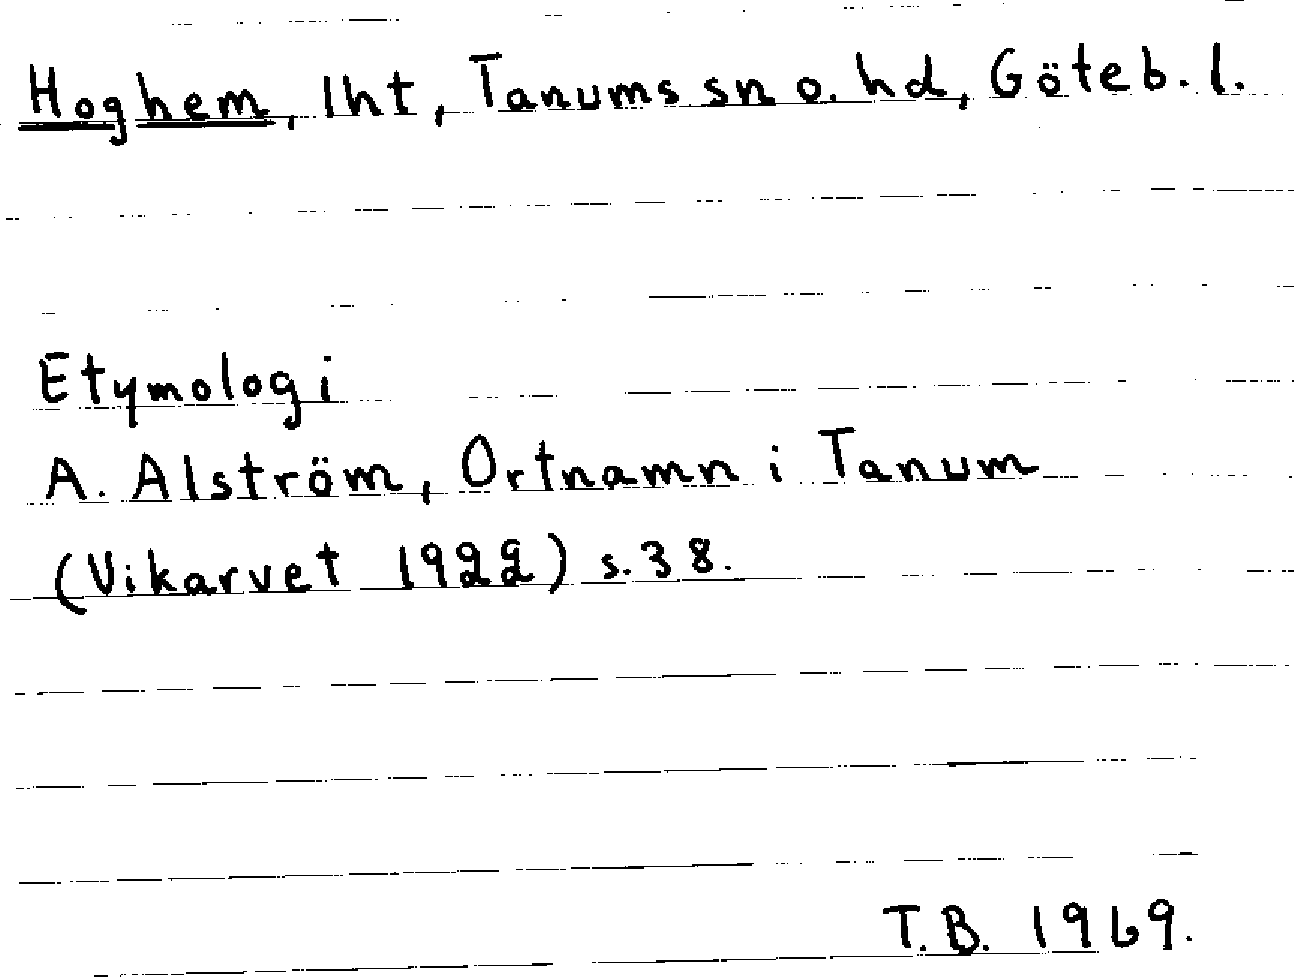 Hoghem, lht, Tanums sn o. hd, Göteb. l.
Etymologi
A. Alström, Ortnamn i Tanum
(Vikarvet 1922) s. 38.
T.B. 1969.